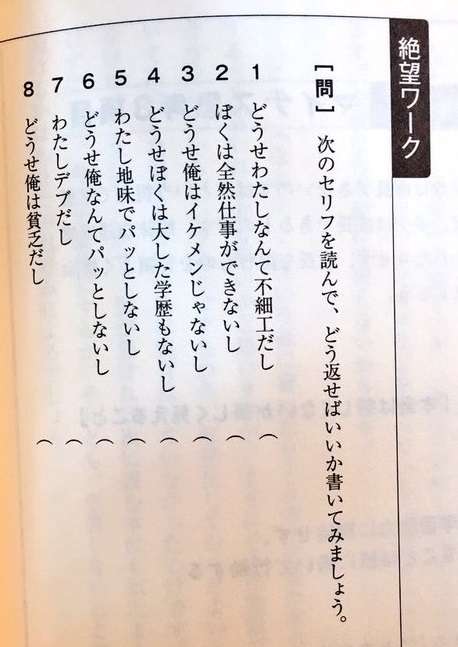 絶望ワーク
［問］ 次のセリフを読んで、どう返せばいいか書いてみましょう。
1 どうせわたしなんて不細工だし （
2 ぼくは全然仕事ができないし （
3 どうせ俺はイケメンじゃないし （
4 どうせぼくは大した学歴もないし （
5 わたし地味でパッとしないし （
6 どうせ俺なんてパッとしないし （
7 わたしデブだし （
8 どうせ俺は貧乏だし